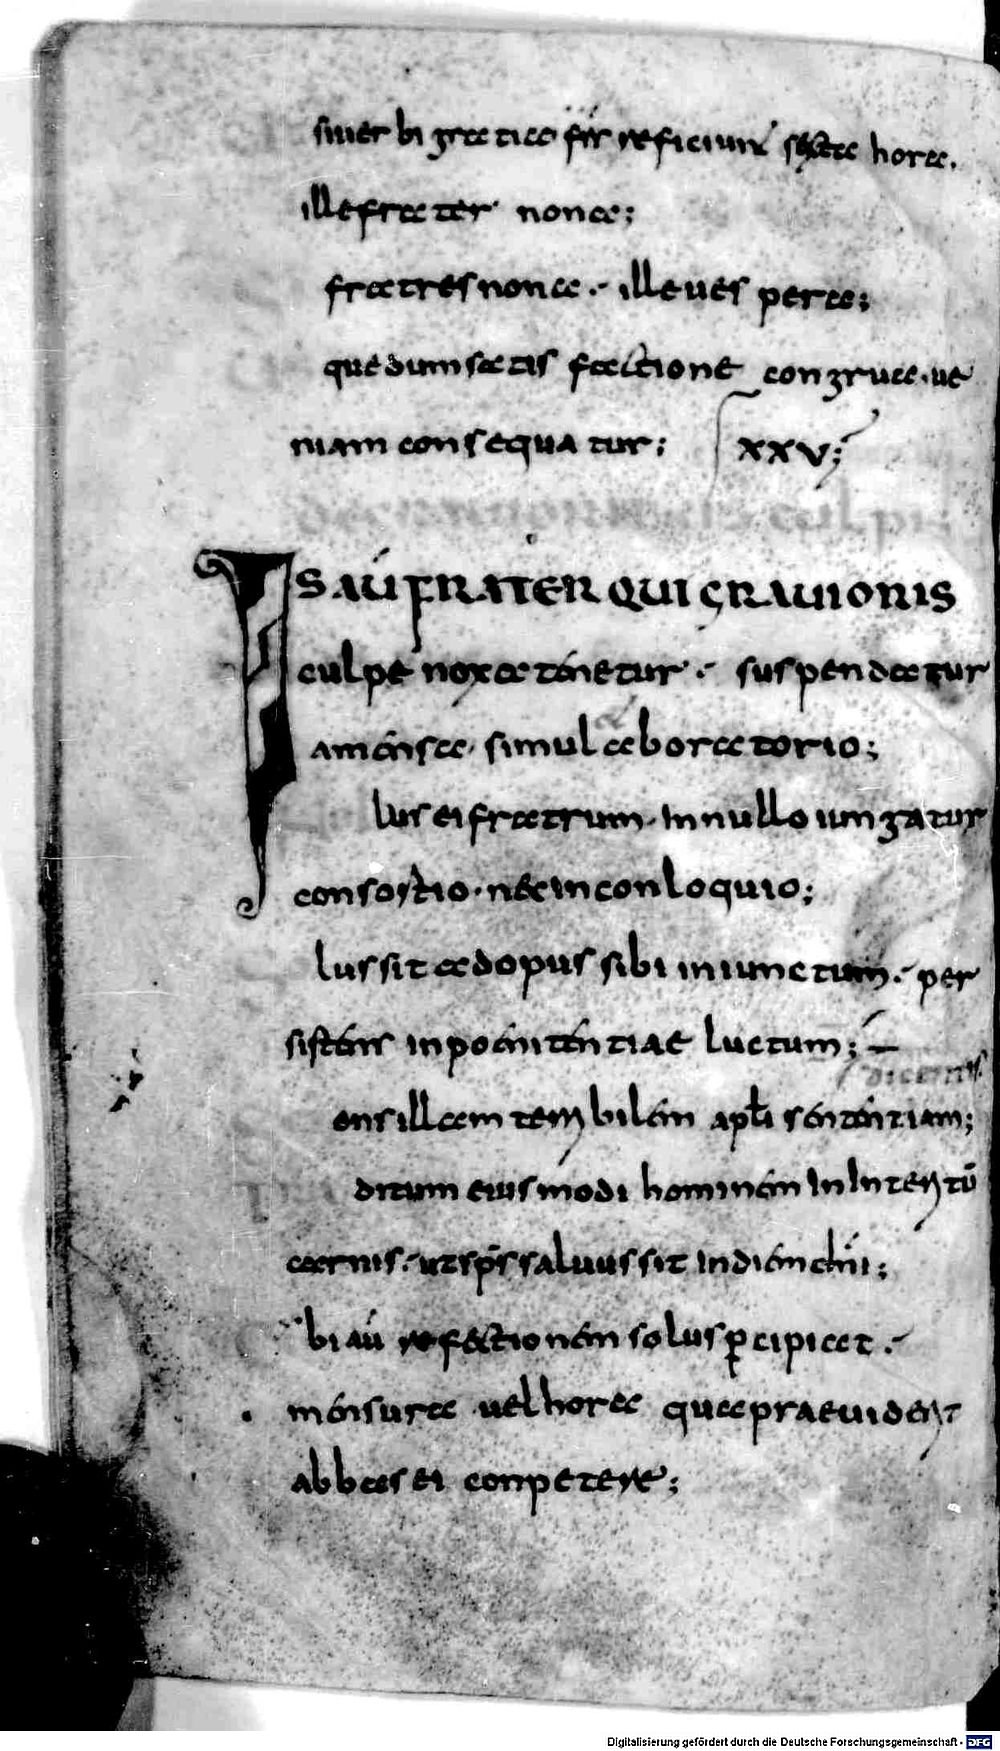 siuerbi gratia frr reficiunt sexta hora.
ille frater nona;
fratres nona. ille uespera;
quedum satisfactione congrua. ue
niam consequatur; XXV;
decrauioribus culpis
IS AŪ FRATER QUI GRAUIORIS
culpe noxa tenetur. suspendatur
a mensa. simul ab oratorio;
lus ei fratrum. In nullo iungatur
consortio. nec in conloquio;
lus sit ad opus sibi iniunctum. per
sistens in poenitentiae luctum;
ens illam terribilem apłi sententiam; dicentis
ditum eius modi hominem In Interitū
carnis. ut sps saluus sit in die dni;
bi aū refectionem solus percipiat.
mensura uel hora qua praeuiderit
abbas ei conpetere;
Digitalisierung gefördert durch die Deutsche Forschungsgemeinschaft - DFG